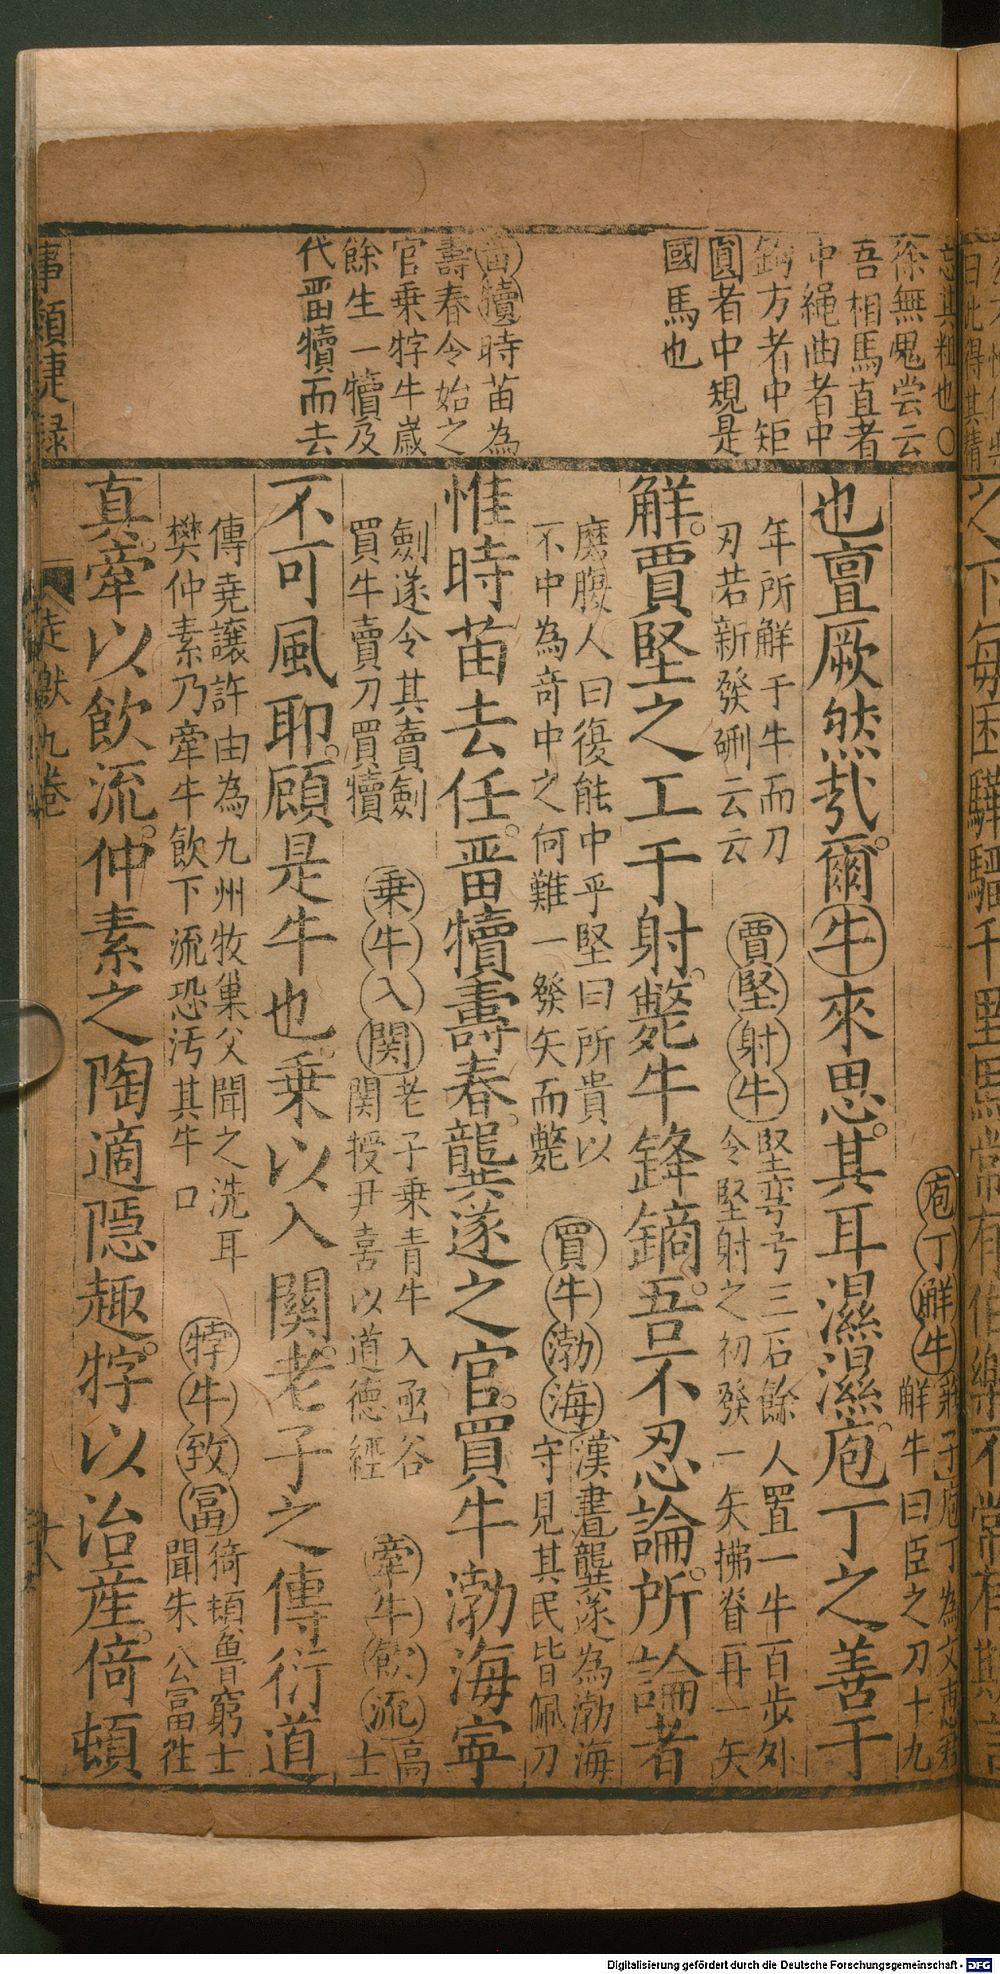 忘其粗也〇
徐無鬼嘗云
吾相馬直者
中繩曲者中
鉤方者中矩
圓者中規是
國馬也
留犢時苗為
壽春令始之
官乗牸牛嵗
餘生一犢及
代畱犢而去
庖丁解牛 莊子庖丁為文惠君
解牛曰臣之刀十九
也亶厥然㢤爾牛來思其耳濕濕庖丁之善于
年所解于牛而刀
刃若新發硎云云
賈堅射牛 堅弯弓三石餘人置一牛百步外
令堅射之初發一矢拂脊再一矢
解賈堅之工于射斃牛鋒鏑吾不忍論所論者
磨腹人曰復能中乎堅曰所貴以
不中為竒中之何難一發矢而斃
買牛渤海 漢書龔遂為渤海
守見其民皆佩刀
惟時苗去任畱犢壽春龔遂之官買牛渤海寕
劍遂令其賣劍
買牛賣刀買犢
乗牛入関 老子乗青牛入函谷
関授尹喜以道德經
牽牛飲流 高
士
不可風耶顧是牛也乗以入關老子之傳衍道
傳堯讓許由為九州牧巢父聞之洗耳
樊仲素乃牽牛飲下流恐汚其牛口
牸牛致冨 倚頓魯窮士
聞朱公富徃
真牽以飲流仲素之陶適隱趣牸以治産倚頓
事類捷録
九卷
十八
Digitalisierung gefördert durch die Deutsche Forschungsgemeinschaft - DFG